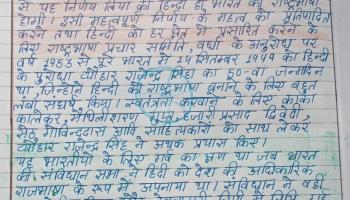 में यह निर्णय लिया की हिन्दी ही भारत की राष्ट्रभाषा
होगी। इसी महत्वपूर्ण निर्णय के महत्व को प्रतिपादित
करने तथा हिन्दी को हर क्षेत्र में प्रसारित करने के
लिए राष्ट्रभाषा प्रचार समिति, वर्धा के अनुरोध पर
वर्ष 1953 से पूरे भारत में 14 सितंबर 1949 को हिन्दी
के पुरोधा व्यौहार राजेन्द्र सिंहा का 50-वां जन्मदिन
था, जिन्होंने हिन्दी को राष्ट्रभाषा बनाने के लिए बहुत
लंबा संघर्ष किया। स्वतंत्रता करवाने के लिए काका
कालेकर, मैथिलीशरण गुप्त, हजारी प्रसाद द्विवेदी,
सेठ गोविन्ददास आदि साहित्यकारों को साथ लेकर
व्यौहार राजेन्द्र सिंह ने अथक प्रयास किए।
यह भारतीयों के लिए गर्व का क्षण था जब भारत
की संविधान सभा ने हिंदी को देश की आधिकारिक
राजभाषा के रूप में अपनाया था। संविधान ने वही
में लिपि